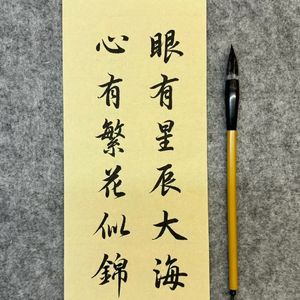 眼有星辰大海
心有繁花似錦